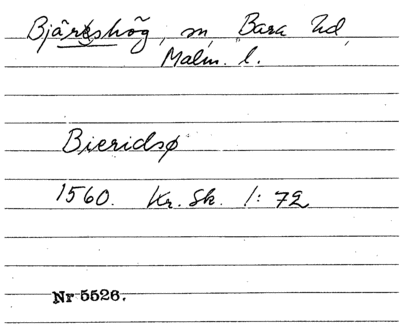 Bjäreshög, sn, Bara hd,
Malm. l.
Bieridsø
1560. Kr. Sk. 1:72
Nr 5526.